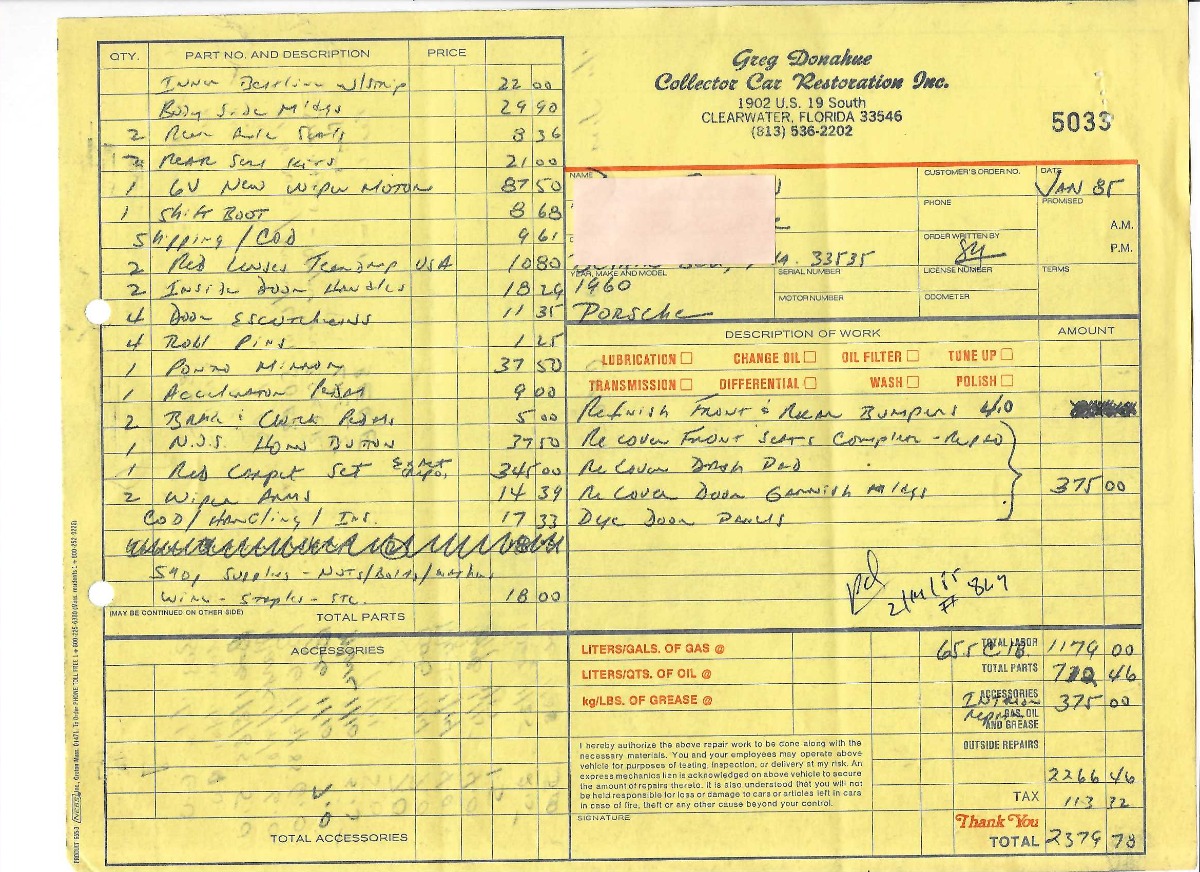 QTY. PART NO. AND DESCRIPTION PRICE
Inner Beltline w/strip 22 00
Body Side Mldgs 29 90
2 Rear Axle Seals 8 36
2 Rear Seal Kits 21 00
1 6V New Wiper Motor 87 50
1 Shift Boot 8 68
Shipping / COD 9 61
2 Red Lenses Teardrop USA 10 80
2 Inside Door Handles 18 29
4 Door Escutcheons 11 35
4 Roll Pins 1 25
1 Ponto Mirror 37 50
1 Accelerator Pedal 9 00
2 Brake & Clutch Pedals 5 00
1 N.O.S. Horn Button 37 50
1 Red Carpet Set Exact Repo. 345 00
2 Wiper Arms 14 39
COD / Handling / Ins. 17 33
Shop Supplies - Nuts/Bolts/
Wire - Staples - Etc. 18 00
(MAY BE CONTINUED ON OTHER SIDE)
TOTAL PARTS
ACCESSORIES
TOTAL ACCESSORIES
PRODUCT 659-3
Greg Donahue
Collector Car Restoration Inc.
1902 U.S. 19 South
CLEARWATER, FLORIDA 33546
(813) 536-2202
5033
NAME
CUSTOMER'S ORDER NO.
DATE
Jan 85
PHONE
PROMISED
A.M.
ORDER WRITTEN BY
P.M.
33535
YEAR, MAKE AND MODEL
SERIAL NUMBER
LICENSE NUMBER
TERMS
1960
MOTOR NUMBER
ODOMETER
Porsche
DESCRIPTION OF WORK AMOUNT
LUBRICATION CHANGE OIL OIL FILTER TUNE UP
TRANSMISSION DIFFERENTIAL WASH POLISH
Refinish Front & Rear Bumpers 4.0
Recover Front Seats Complete - Repro
Recover Dash Pad
Recover Door Garnish Mldgs 375 00
Dye Door Panels
Pd
# 867
LITERS/GALS. OF GAS @
65.5 @ 18. TOTAL LABOR 1179 00
LITERS/QTS. OF OIL @
TOTAL PARTS 712 46
kg/LBS. OF GREASE @
ACCESSORIES 375 00
Interior
GAS, OIL
AND GREASE
OUTSIDE REPAIRS
I hereby authorize the above repair work to be done along with the
necessary materials. You and your employees may operate above
vehicle for purposes of testing, inspection, or delivery at my risk. An
express mechanics lien is acknowledged on above vehicle to secure
the amount of repairs thereto. It is also understood that you will not
be held responsible for loss or damage to cars or articles left in cars
in case of fire, theft or any other cause beyond your control.
SIGNATURE
2266 46
TAX 113 32
Thank You
TOTAL 2379 78